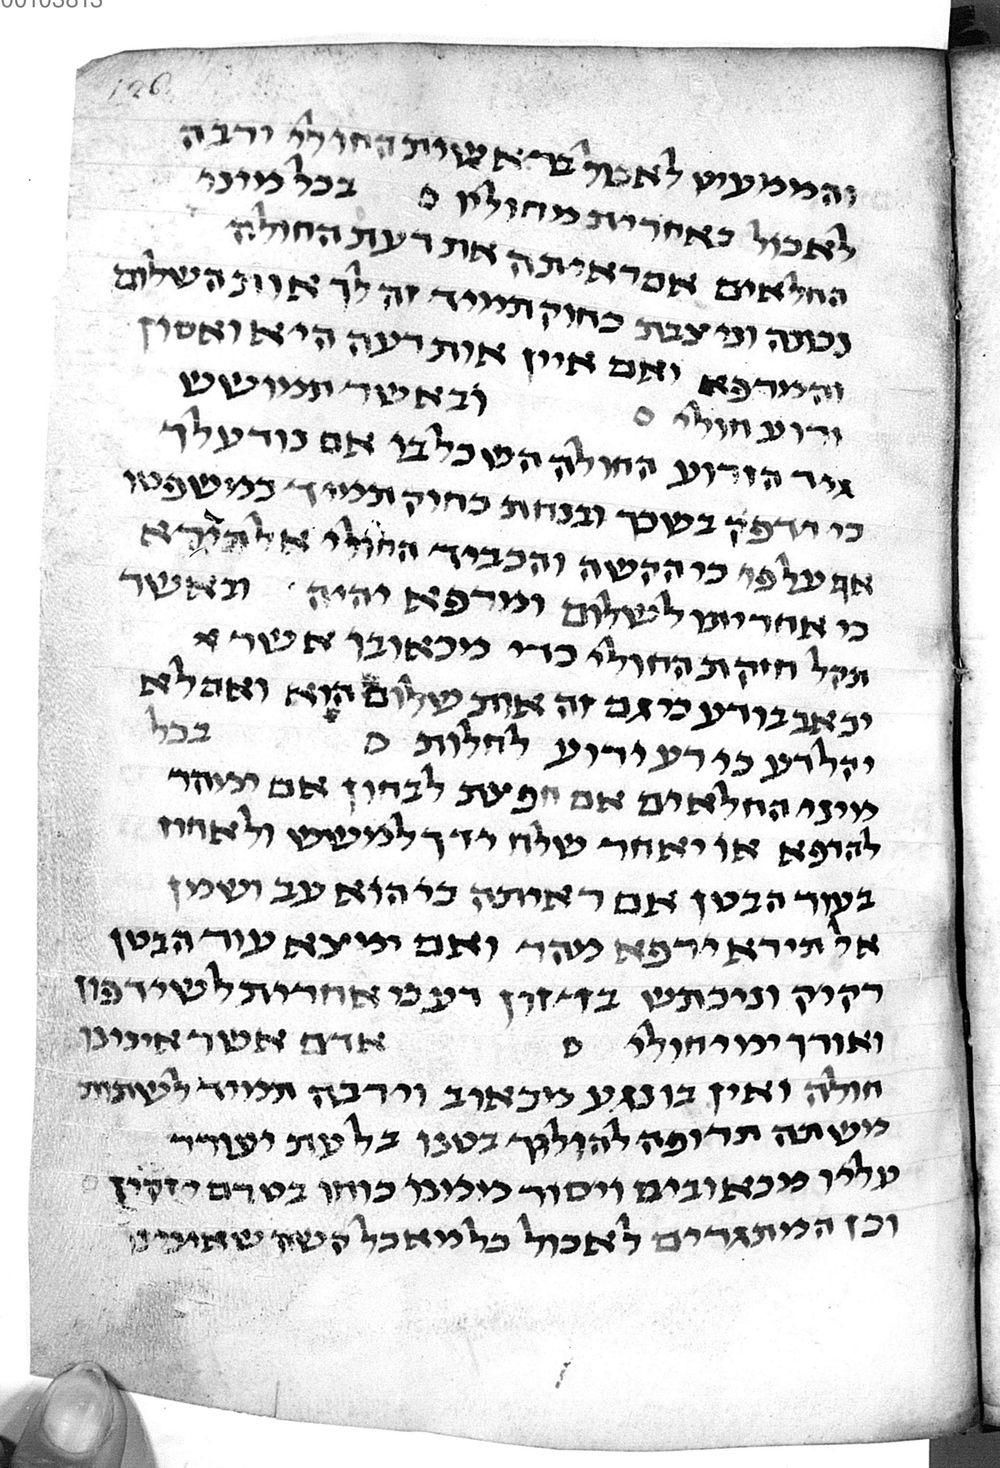 00103813
126
והממעיט לאכול בראשית החולי ירבה
לאכול באחרית מחוליו ס בכל מיני
החלאים אם ראיתה את דעת החולה
נכונה וניצבת כחוק תמיד זה לך אות השלום
והמרפא ואם איין אות רעה היא ואסון
ורוע חולי ס ובאשר תמושש
גיד הזרוע החולה השכל בו אם נודע לך
כי ידפק בשכך ובנחת כחוק תמיד כמשפטו
אף על פי כי הקשה והכביד החולי אל תירא
כי אחריתו לשלום ומרפא יהיה ובאשר
תקל חזקת החולי כדי מכאובו אשר
יכאב בו דע כי גם זה אות שלום הוא ואם לא
יהל דע כי רע ידוע לחלות ס בכל
מיני החלאים אם חפצת לבחון אם ימהר
להרפא או יאחר שלח ידך למשש ולאחוז
בעור הבטן אם ראיתה כי הוא עב ושמן
אל תירא ירפא מהר ואם ימצא עור הבטן
רקיק וניכתש בדרזון דע כי אחרית לשידפון
ואורך ימי חולי ס אדם אשר איננו
חולה ואין בו נגע מכאוב וירבה תמיד לשתות
משתה תרופה להולך בטנו בלעת יעורר
עליו מכאובים ויסור ממנו כוחו בטרם יזקין
וכן המתגרים לאכול כל מאכל קשה שאיננו